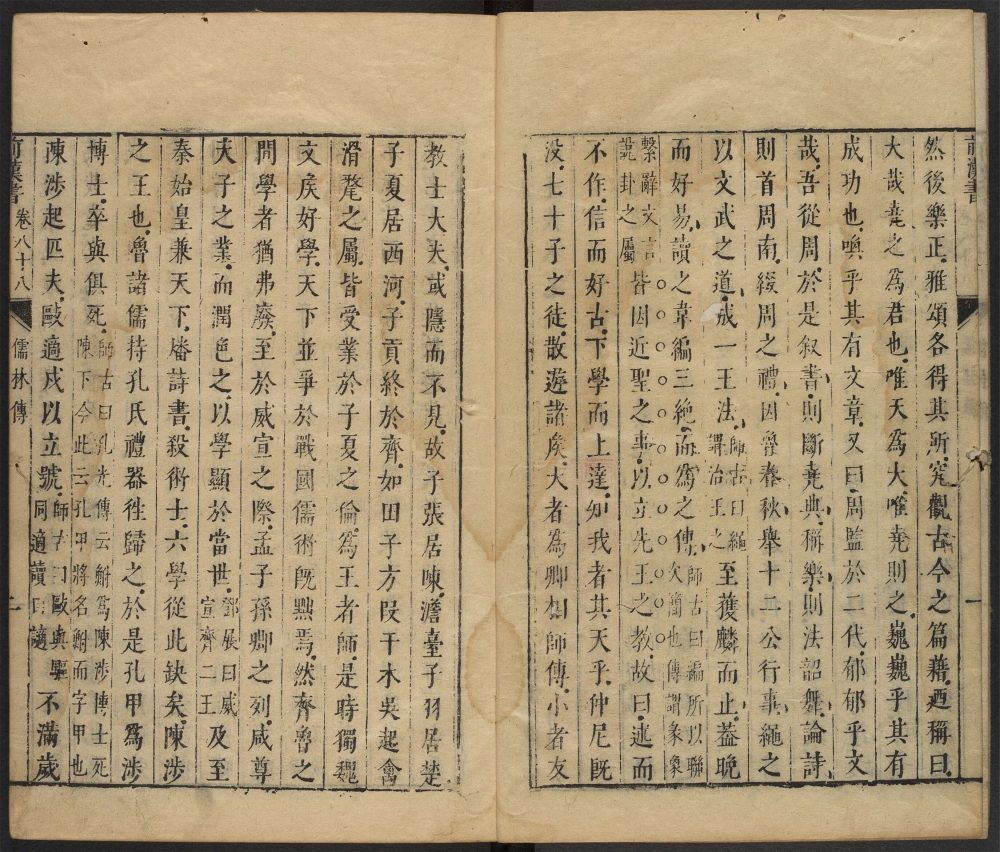 前漢書
一
然後樂正雅頌各得其所究觀古今之篇藉迺稱曰
大哉堯之爲君也唯天爲大唯堯則之巍巍乎其有
成功也喚乎其有文章又曰周監於二代郁郁乎文
哉吾從周於是叙書則斷堯典稱樂則法韶舞論詩
則首周南綴周之禮因魯春秋舉十二公行事繩之
以文武之道成一王法師古曰繩謂治王之至獲麟而止葢晚
而好易讀之韋編三絶而爲之傳師古曰編所以聯次簡也傳謂彖象
繫辭文言說卦之屬皆因近聖之事以立先王之教故曰述而
不作信而好古下學而上達知我者其天乎仲尼旣
没七十子之徒散遊諸矦大者爲卿相師傳小者友
教士大夫或隱而不見故子張居陳澹臺子羽居楚
子夏居西河子貢終於齊如田子方段干木吳起禽
滑氂之屬皆受業於子夏之倫爲王者師是時獨魏
文矦好學天下並爭於戰國儒術旣黜焉然齊魯之
間學者猶弗廢至於威宣之際孟子孫卿之列咸尊
夫子之業而潤色之以學顯於當世鄧展曰威宣齊二王及至
秦始皇兼天下燔詩書殺術士六學從此缺矣陳涉
之王也魯諸儒持孔氏禮器徃歸之於是孔甲爲涉
博士卒與俱死師古曰孔光傳云鮒爲陳涉博士死陳下今此云孔甲將名鮒而字甲也
陳涉起匹夫敺適戍以立號師古曰敺與驅同適讀曰讁不滿歲
前漢書 卷八十八 儒林傳
二